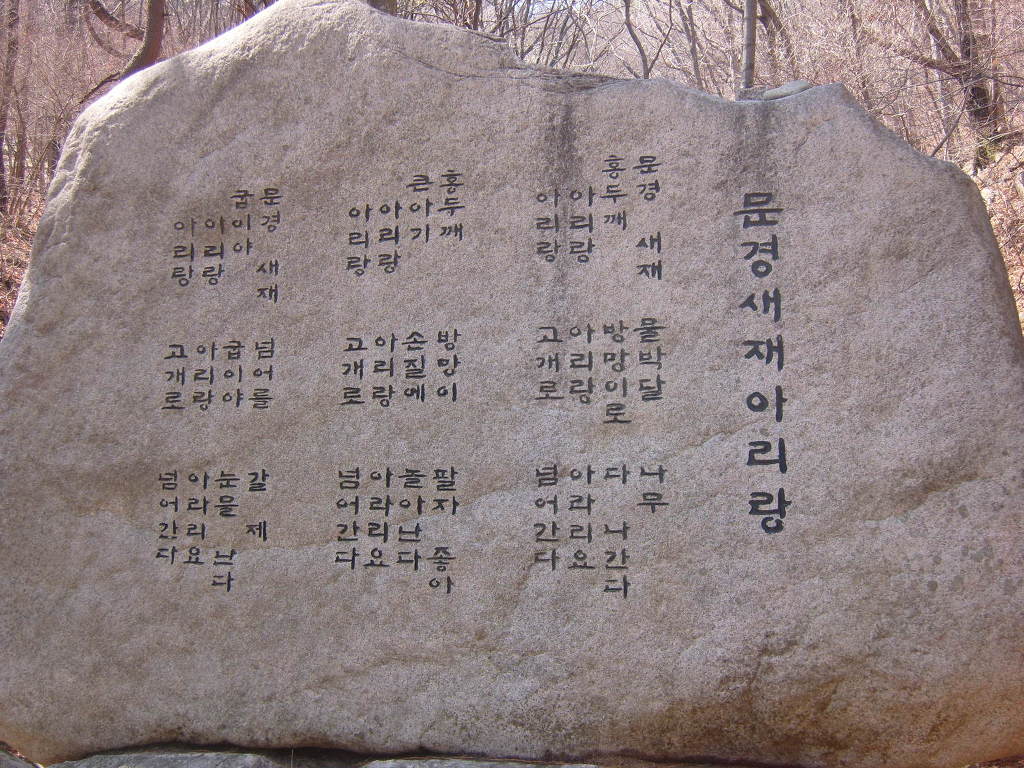 문경새재아리랑
문경 새재 물박달 나무
홍두깨 방망이로 다 나간다
아리랑 아리랑 아라리요
아리랑 고개로 넘어간다
홍두깨 방망이 팔자 좋아
큰아기 손질에 놀아난다
아리랑 아리랑 아라리요
아리랑 고개로 넘어간다
문경 새재 넘어를 갈 제
굽이야 굽이야 눈물 난다
아리랑 아리랑 아라리요
아리랑 고개로 넘어간다